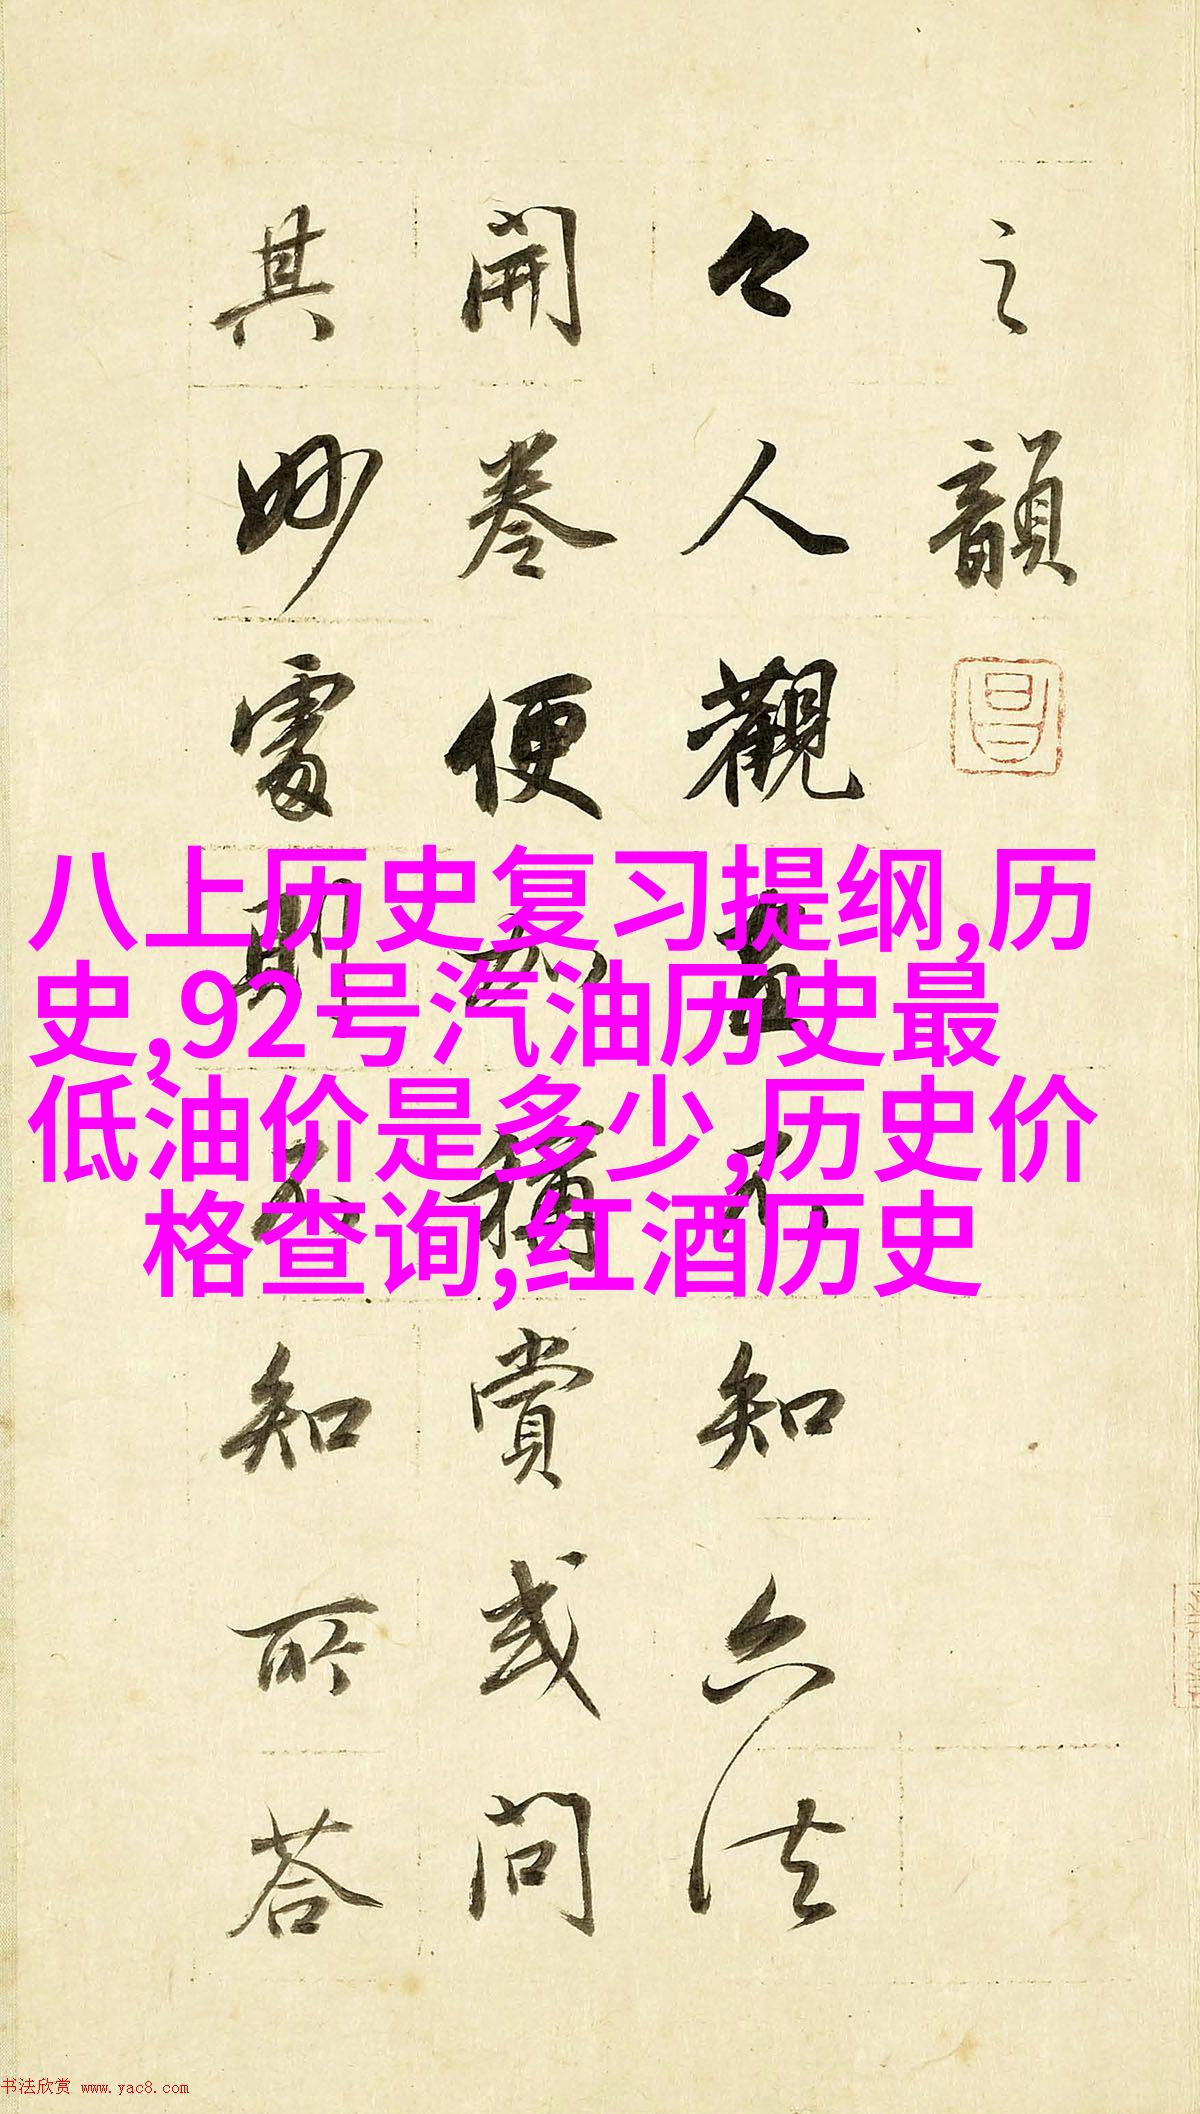 之韻
今人觀畫不知六法
開卷便加稱賞或問
其妙處則不知所荅
八上历史复习提纲,历
史,92号汽油历史最
低油价是多少,历史价
格查询,红酒历史
书法欣赏 www.yac8.com